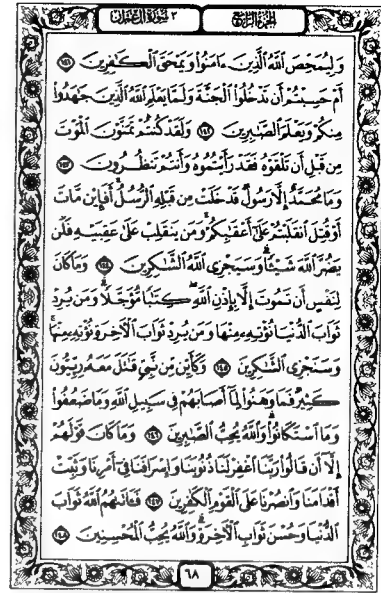 الجزء الرابع
٣ سورة آل عمران
وَلِيُمَحِّصَ ٱللَّهُ ٱلَّذِينَ ءَامَنُوا۟ وَيَمْحَقَ ٱلْكَٰفِرِينَ ١٤١
أَمْ حَسِبْتُمْ أَن تَدْخُلُوا۟ ٱلْجَنَّةَ وَلَمَّا يَعْلَمِ ٱللَّهُ ٱلَّذِينَ جَٰهَدُوا۟
مِنكُمْ وَيَعْلَمَ ٱلصَّٰبِرِينَ ١٤٢ وَلَقَدْ كُنتُمْ تَمَنَّوْنَ ٱلْمَوْتَ
مِن قَبْلِ أَن تَلْقَوْهُ فَقَدْ رَأَيْتُمُوهُ وَأَنتُمْ تَنظُرُونَ ١٤٣
وَمَا مُحَمَّدٌ إِلَّا رَسُولٌ قَدْ خَلَتْ مِن قَبْلِهِ ٱلرُّسُلُ أَفَإِي۟ن مَّاتَ
أَوْ قُتِلَ ٱنقَلَبْتُمْ عَلَىٰٓ أَعْقَٰبِكُمْ وَمَن يَنقَلِبْ عَلَىٰ عَقِبَيْهِ فَلَن
يَضُرَّ ٱللَّهَ شَيْـًٔا وَسَيَجْزِى ٱللَّهُ ٱلشَّٰكِرِينَ ١٤٤ وَمَا كَانَ
لِنَفْسٍ أَن تَمُوتَ إِلَّا بِإِذْنِ ٱللَّهِ كِتَٰبًا مُّؤَجَّلًا وَمَن يُرِدْ
ثَوَابَ ٱلدُّنْيَا نُؤْتِهِۦ مِنْهَا وَمَن يُرِدْ ثَوَابَ ٱلْـَٔاخِرَةِ نُؤْتِهِۦ مِنْهَا
وَسَنَجْزِى ٱلشَّٰكِرِينَ ١٤٥ وَكَأَيِّن مِّن نَّبِىٍّ قَٰتَلَ مَعَهُۥ رِبِّيُّونَ
كَثِيرٌ فَمَا وَهَنُوا۟ لِمَآ أَصَابَهُمْ فِى سَبِيلِ ٱللَّهِ وَمَا ضَعُفُوا۟
وَمَا ٱسْتَكَانُوا۟ وَٱللَّهُ يُحِبُّ ٱلصَّٰبِرِينَ ١٤٦ وَمَا كَانَ قَوْلَهُمْ
إِلَّآ أَن قَالُوا۟ رَبَّنَا ٱغْفِرْ لَنَا ذُنُوبَنَا وَإِسْرَافَنَا فِىٓ أَمْرِنَا وَثَبِّتْ
أَقْدَامَنَا وَٱنصُرْنَا عَلَى ٱلْقَوْمِ ٱلْكَٰفِرِينَ ١٤٧ فَـَٔاتَىٰهُمُ ٱللَّهُ ثَوَابَ
ٱلدُّنْيَا وَحُسْنَ ثَوَابِ ٱلْـَٔاخِرَةِ وَٱللَّهُ يُحِبُّ ٱلْمُحْسِنِينَ ١٤٨
٦٨